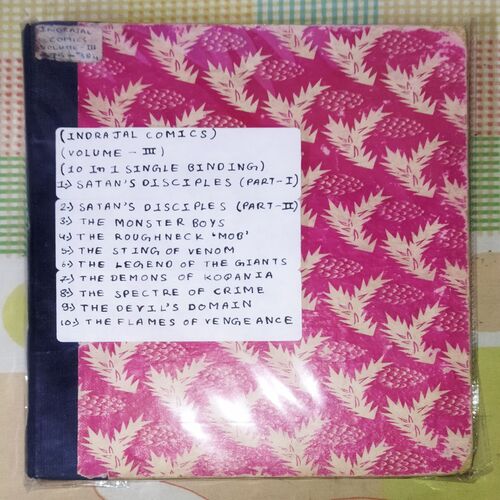 INDRAJAL
COMICS
VOLUME - III
(INDRAJAL COMICS)
(VOLUME - III)
(10 In 1 SINGLE BINDING)
1.) SATAN'S DISCIPLES (PART-I)
2.) SATAN'S DISCIPLES (PART-II)
3.) THE MONSTER BOYS
4.) THE ROUGHNECK 'MOB'
5.) THE STING OF VENOM
6.) THE LEGEND OF THE GIANTS
7.) THE DEMONS OF KOQANIA
8.) THE SPECTRE OF CRIME
9.) THE DEVIL'S DOMAIN
10.) THE FLAMES OF VENGEANCE